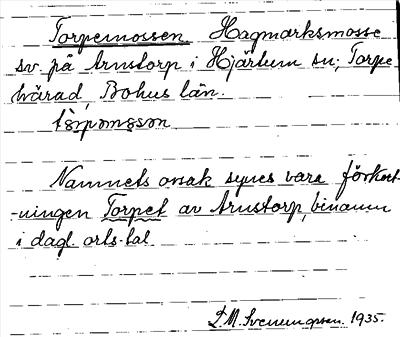 Torpemossen. Hagmarksmosse
sv. på Arnstorp i Hjärtum sn; Torpe
härad, Bohus län.
Namnets orsak synes vara förkort-
-ningen Torpet av Arnstorp, binamn
i dagl. orts-tal.
1935.